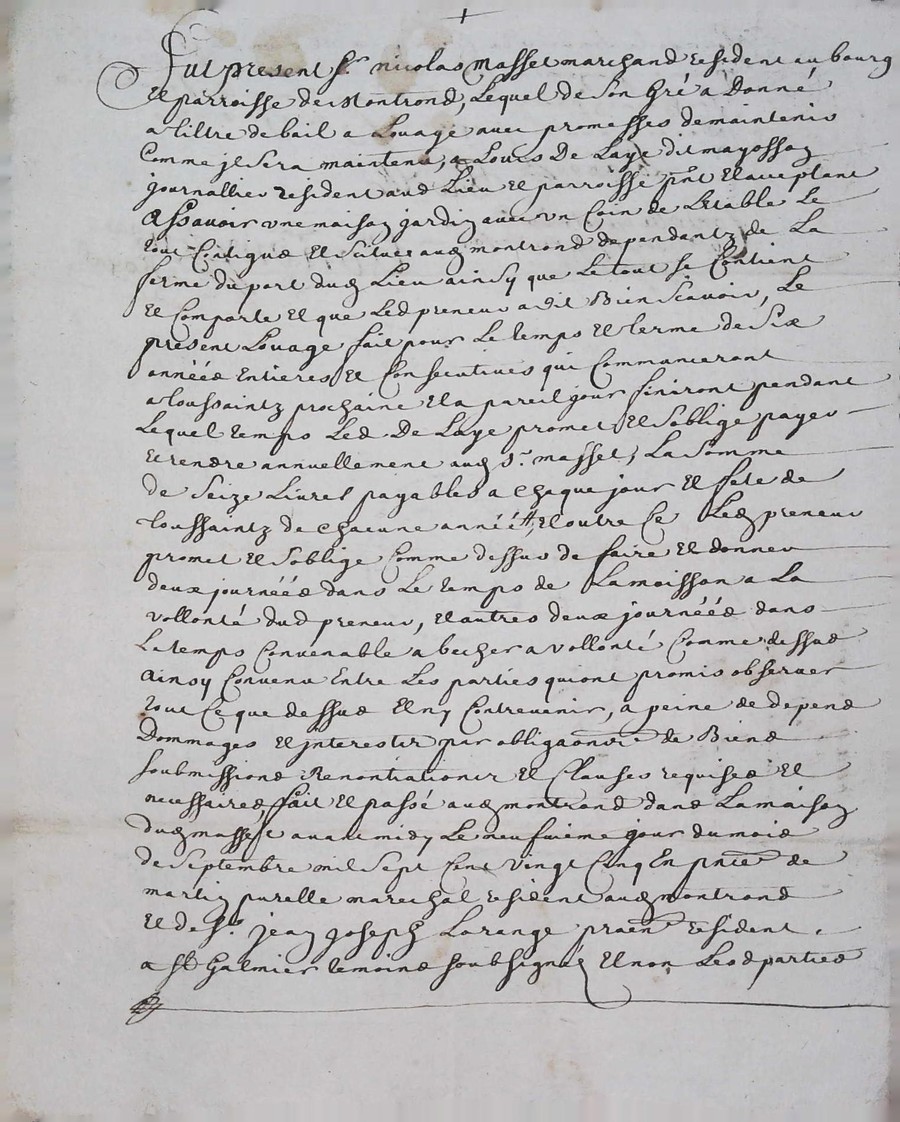 Fut present Sr nicolas masset marchand resident au bourg
et parroisse de Montrond, Lequel de Son Gré a Donné
a tiltre de bail a Louage avec promesses de maintenir
Comme jl Sera maintenu, a Louis De Laye dit mayossoy
journallier resident aud Lieu et parroisse pnt et acceptant
assavoir une maison jardin avec un Coin de Letable Le
tout Contigue et Scitues aud montrond dependantz de La
ferme du port dud Lieu ainsy que Le tout se Contient
et Comporte et que Led preneur a dit Bien Scavoir, Le
present Louage fait pour Le temps et terme de Six
années Entieres et Consecutives qui Commanceront
a toussaintz prochaine et a pareil jour finiront pendant
Lequel temps Led De Laye promet et Soblige payer
et rendre annuellement aud Sr masset, La Somme
de Seize Livres payables a chaque jour et fete de
toussaintz de chacune année, et outre Ce Led preneur
promet et Soblige Comme dessus de faire et donner
deux journéés dans Le temps de La moisson a La
vollonté dud preneur, et autres deux journéés dans
Le temps Convenable a becher a vollonté Comme dessus
ainsy Convenu Entre Les parties qui ont promis observer
tout Ce que dessus et ny Contrevenir, a peine de depens
Dommages et jnterestz par obligaons de Biens
soubmissions Renontiations et Clauses requises et
necessaires fait et passé aud montrond dans La maison
dud masset avant midy Le neufuieme jour du mois
de Septembre mil Sept Cent vingt Cinq En pnce de
martin purelle marechal resident aud montrond
et de Sr jean joseph Larange praen resident
a St Galmier temoins Soubsignés et non Lesd parties